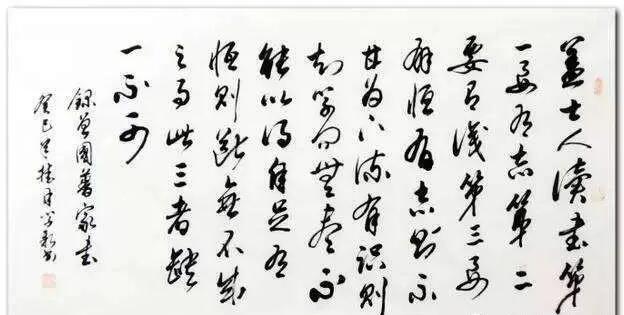 蓋士人讀書第
一要有志第二
要有識第三要
有恒有志則不
甘为下流有识則
知学问無尽不
能以得自足有
恒則斷無不成
之事此三者缺
一不可
録曾國藩家書
癸巳 桂月